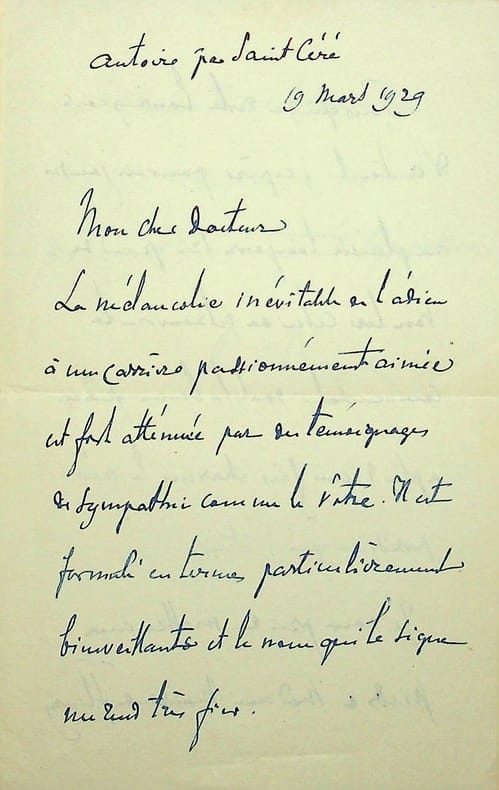 Autoire par Saint Céré
19 Mars 1929
Mon cher Docteur
La mélancolie inévitable de l'adieu
à une carrière passionnément aimée
est fort atténuée par des témoignages
de sympathie comme le vôtre. Il est
formulé en termes particulièrement
bienveillants et le nom qui le signe
me rend très fier.